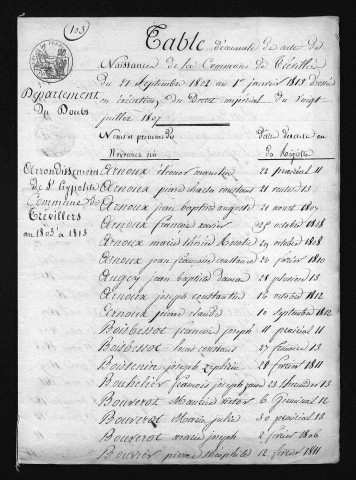 (103)
Table décennale des actes de
Naissances de la Commune de Trévillers
du 21 septembre 1802 au 1er janvier 1813 dressée
en exécution du Décret impérial du vingt
juillet 1807
Département
Du Doubs
Noms et prénoms des
Nouveaux nés
Date des actes ou
du Registre
Arrondissement
de St hypolite
Commune de
Trévillers
an 1803 à 1813
Arnoux éléonor 22 prairial 11
Arnoux pierre charles constant 21 13
Arnoux jean baptiste auguste 21 avril 1807
Arnoux françois xavier 25 octobre 1808
Arnoux marie 29 octobre 1808
Arnoux jean francois constant 20 février 1810
jean baptiste 28 pluviose 13
Arnoux joseph constantin 16 octobre 1812
Arnoux pierre claude 10 septembre 1812
Boisbessot francois joseph 11 prairial 11
Boisbessot louis constant 27 frimaire 13
joseph 28 février 1811
Bouhelier francois joseph 23 13
Bouverot victor 6 germinal 12
Bouverot Marie julie 30 prairial 13
Bouverot marie joseph 2 février 1806
Bouvier pierre théophile 12 février 1811